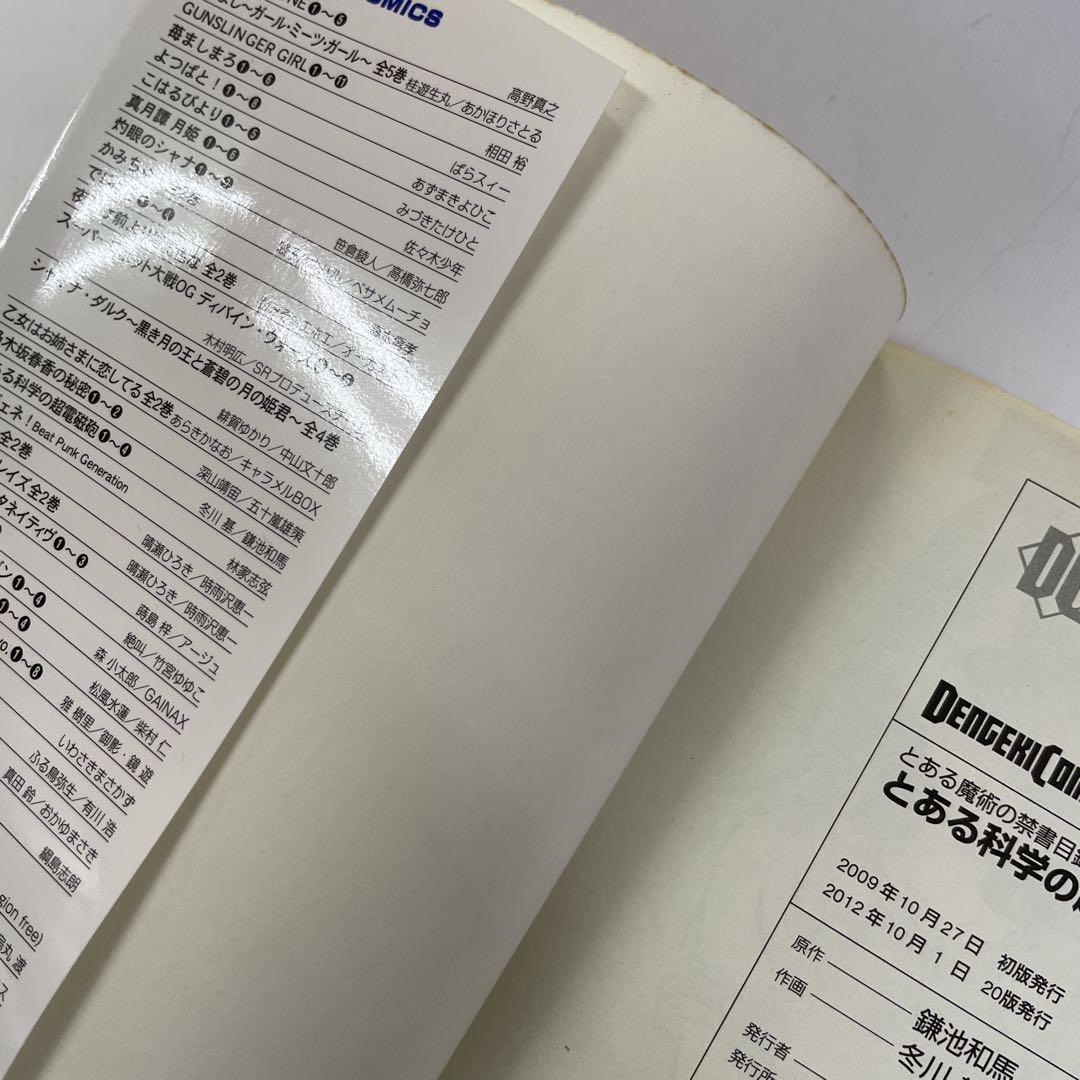 COMICS
NE❶～❺
よし～ガール・ミーツ・ガール～ 全5巻
高野真之
GUNSLINGER GIRL❶～⓫
桂遊生丸／あかほりさとる
苺ましまろ❶～❻
相田 裕
よつばと！❶～❽
ばらスィー
こはるびより❶～❺
あずまきよひこ
真月譚 月姫 ❶～❻
みづきたけひと
灼眼のシャナ❶～❾
佐々木少年
かみち
笹倉綾人／高橋弥七郎
ベサメムーチョ
全2巻
スーパー
ット大戦OG ディバイン・ウォーズ
木村明広／SRプロデュースチ
ダルク～黒き月の王と蒼碧の月の姫君～ 全4巻
緋賀ゆかり／中山文十郎
乙女はお姉さまに恋してる 全2巻
あらきかなお／キャラメルBOX
木坂春香の秘密❶～❷
深山靖宙／五十嵐雄策
る科学の超電磁砲❶～❹
冬川 基／鎌池和馬
ェネ！Beat Punk Generation
林家志弦
全2巻
晴瀬ひろき／時雨沢恵一
レイズ 全2巻
晴瀬ひろき／時雨沢恵一
タネイティヴ❶～❸
蒔島 梓／アージュ
絶叫／竹宮ゆゆこ
ン❶～❹
森 小太郎／GAINAX
❶～❹
松風水蓮／柴村 仁
o.❶～❽
雅 樹里／御影・鏡 遊
いわさきまさかず
ふる鳥弥生／有川 浩
真田 鈴／おかゆまさき
綱島志朗
gion free)
烏丸 渡
DENGEKI COM
とある魔術の禁書目録
とある科学の
2009年10月27日 初版発行
2012年10月 1日 20版発行
原作
鎌池和馬
作画
冬川
発行者
発行所